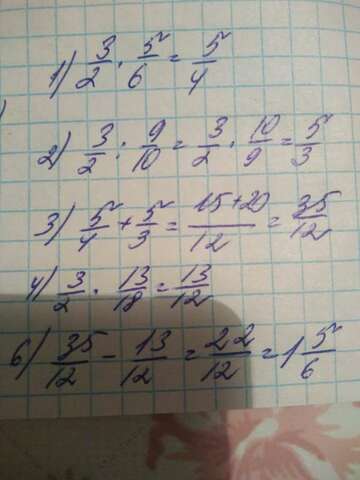 1) 3/2 · 5/6 = 5/4
2) 3/2 : 9/10 = 3/2 · 10/9 = 5/3
3) 5/4 + 5/3 = 15+20/12 = 35/12
4) 3/2 · 13/18 = 13/12
6) 35/12 - 13/12 = 22/12 = 1 5/6